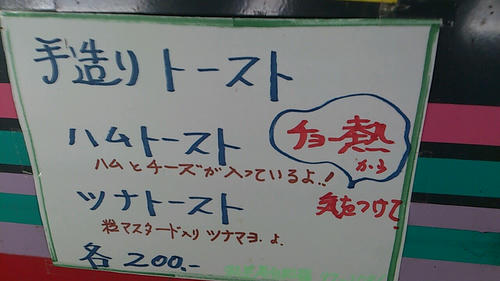 手造りトースト
ハムトースト
ハムとチーズが入っているよ!!
ツナトースト
粒マスタード入りツナマヨ.よ.
各200.-
チョー熱
から
気をつけて